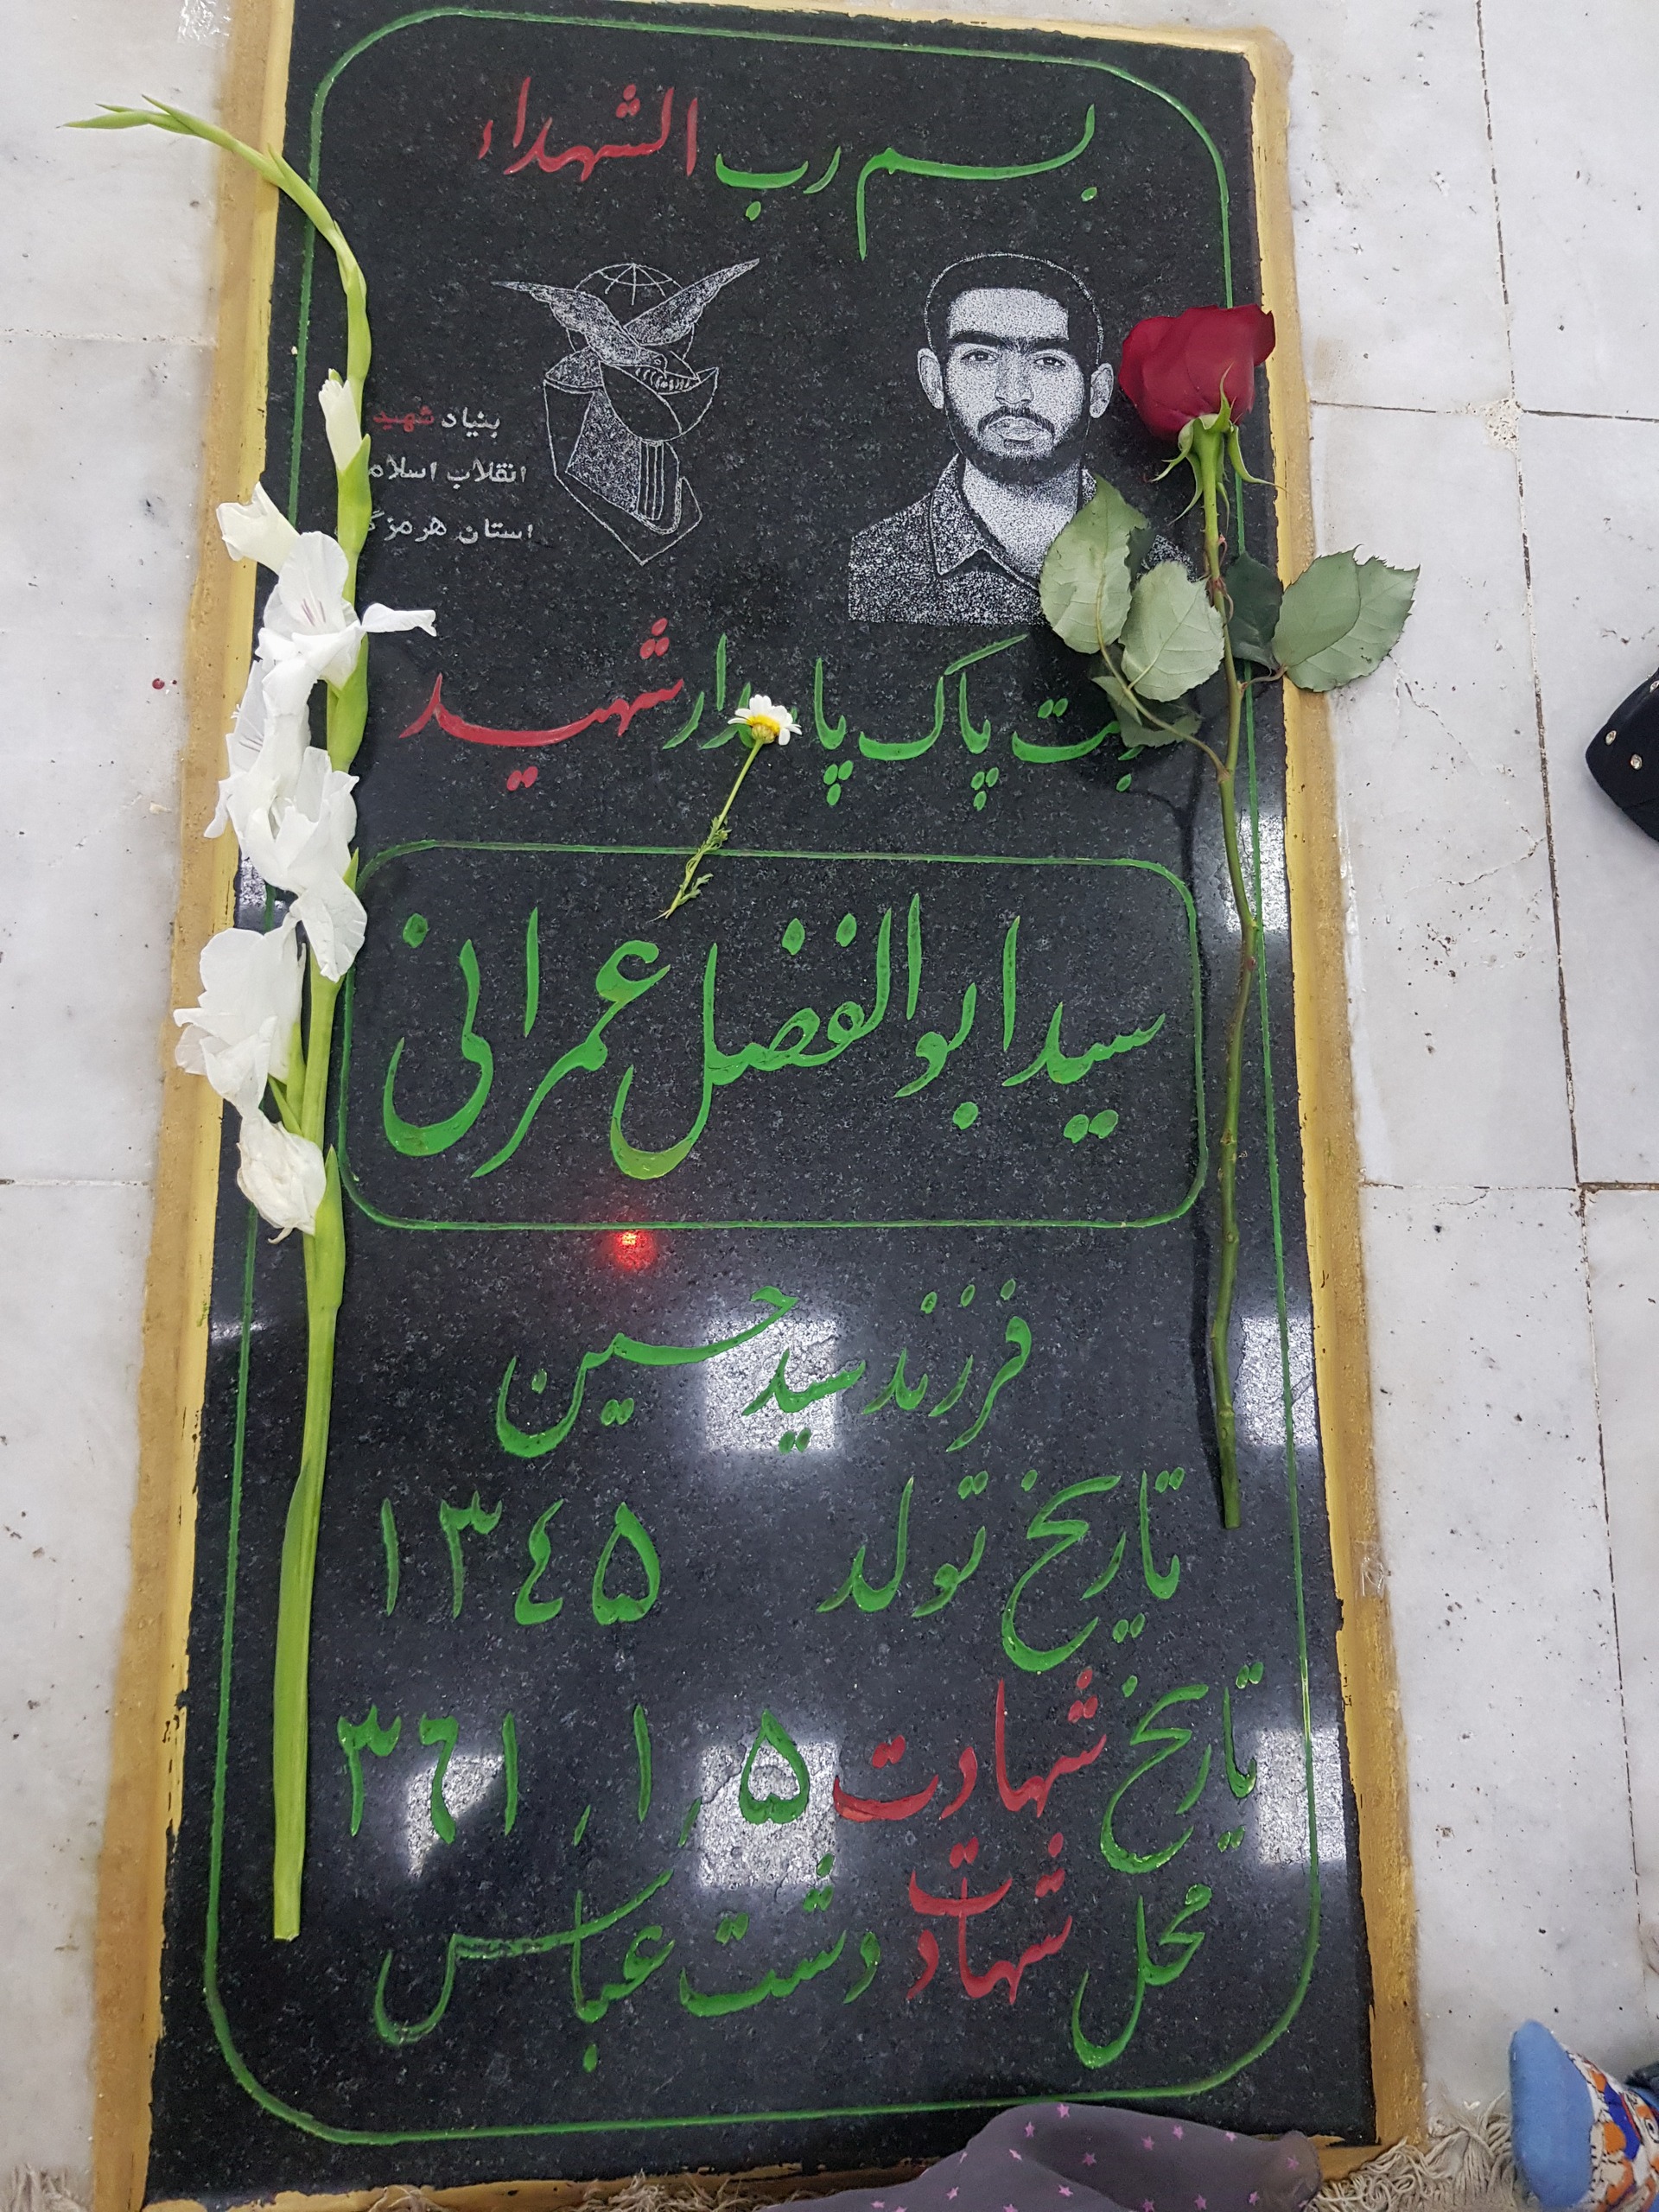 بسم رب الشهداء
بنیاد شهید
انقلاب اسلام
استان هرمزگ
پاک شهید
سید ابوالفضل عمرانی
فرزند سید حسین
تاریخ تولد ۱۳٤۵
تاریخ شهادت ۵, ۱, ۳٦۱
محل شهادت دشت عباس